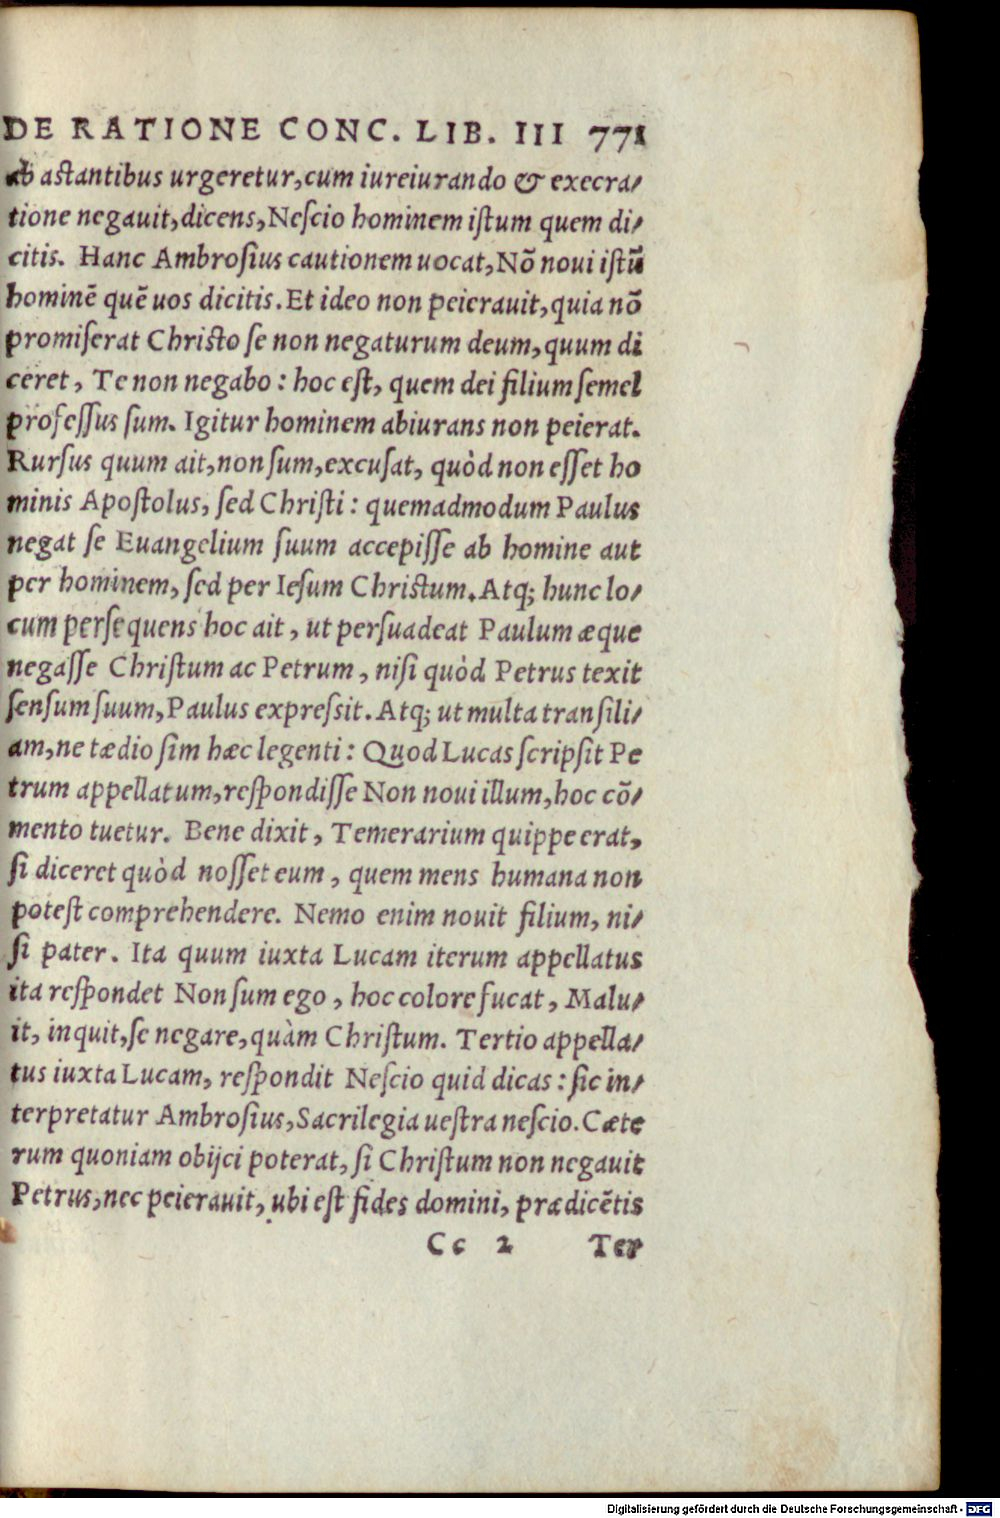 DE RATIONE CONC. LIB. III 771
ab astantibus urgeretur, cum iureiurando & execra/
tione negauit, dicens, Nescio hominem istum quem di/
citis. Hanc Ambrosius cautionem uocat, Nõ noui istũ
hominẽ quẽ uos dicitis. Et ideo non peierauit, quia nõ
promiserat Christo se non negaturum deum, quum di
ceret, Te non negabo: hoc est, quem dei filium semel
professus sum. Igitur hominem abiurans non peierat.
Rursus quum ait, non sum, excusat, quòd non esset ho
minis Apostolus, sed Christi: quemadmodum Paulus
negat se Euangelium suum accepisse ab homine aut
per hominem, sed per Iesum Christum. Atq; hunc lo/
cum persequens hoc ait, ut persuadeat Paulum æque
negasse Christum ac Petrum, nisi quòd Petrus texit
sensum suum, Paulus expressit. Atq; ut multa transili/
am, ne tædio sim hæc legenti: Quod Lucas scripsit Pe
trum appellatum, respondisse Non noui illum, hoc cõ/
mento tuetur. Bene dixit, Temerarium quippe erat,
si diceret quòd nosset eum, quem mens humana non
potest comprehendere. Nemo enim nouit filium, ni/
si pater. Ita quum iuxta Lucam iterum appellatus
ita respondet Non sum ego, hoc colore fucat, Malu/
it, inquit, se negare, quàm Christum. Tertio appella/
tus iuxta Lucam, respondit Nescio quid dicas: sic in/
terpretatur Ambrosius, Sacrilegia uestra nescio. Cæte
rum quoniam obijci poterat, si Christum non negauit
Petrus, nec peierauit, ubi est fides domini, prædicẽtis
Cc 2 Ter
Digitalisierung gefördert durch die Deutsche Forschungsgemeinschaft - DFG